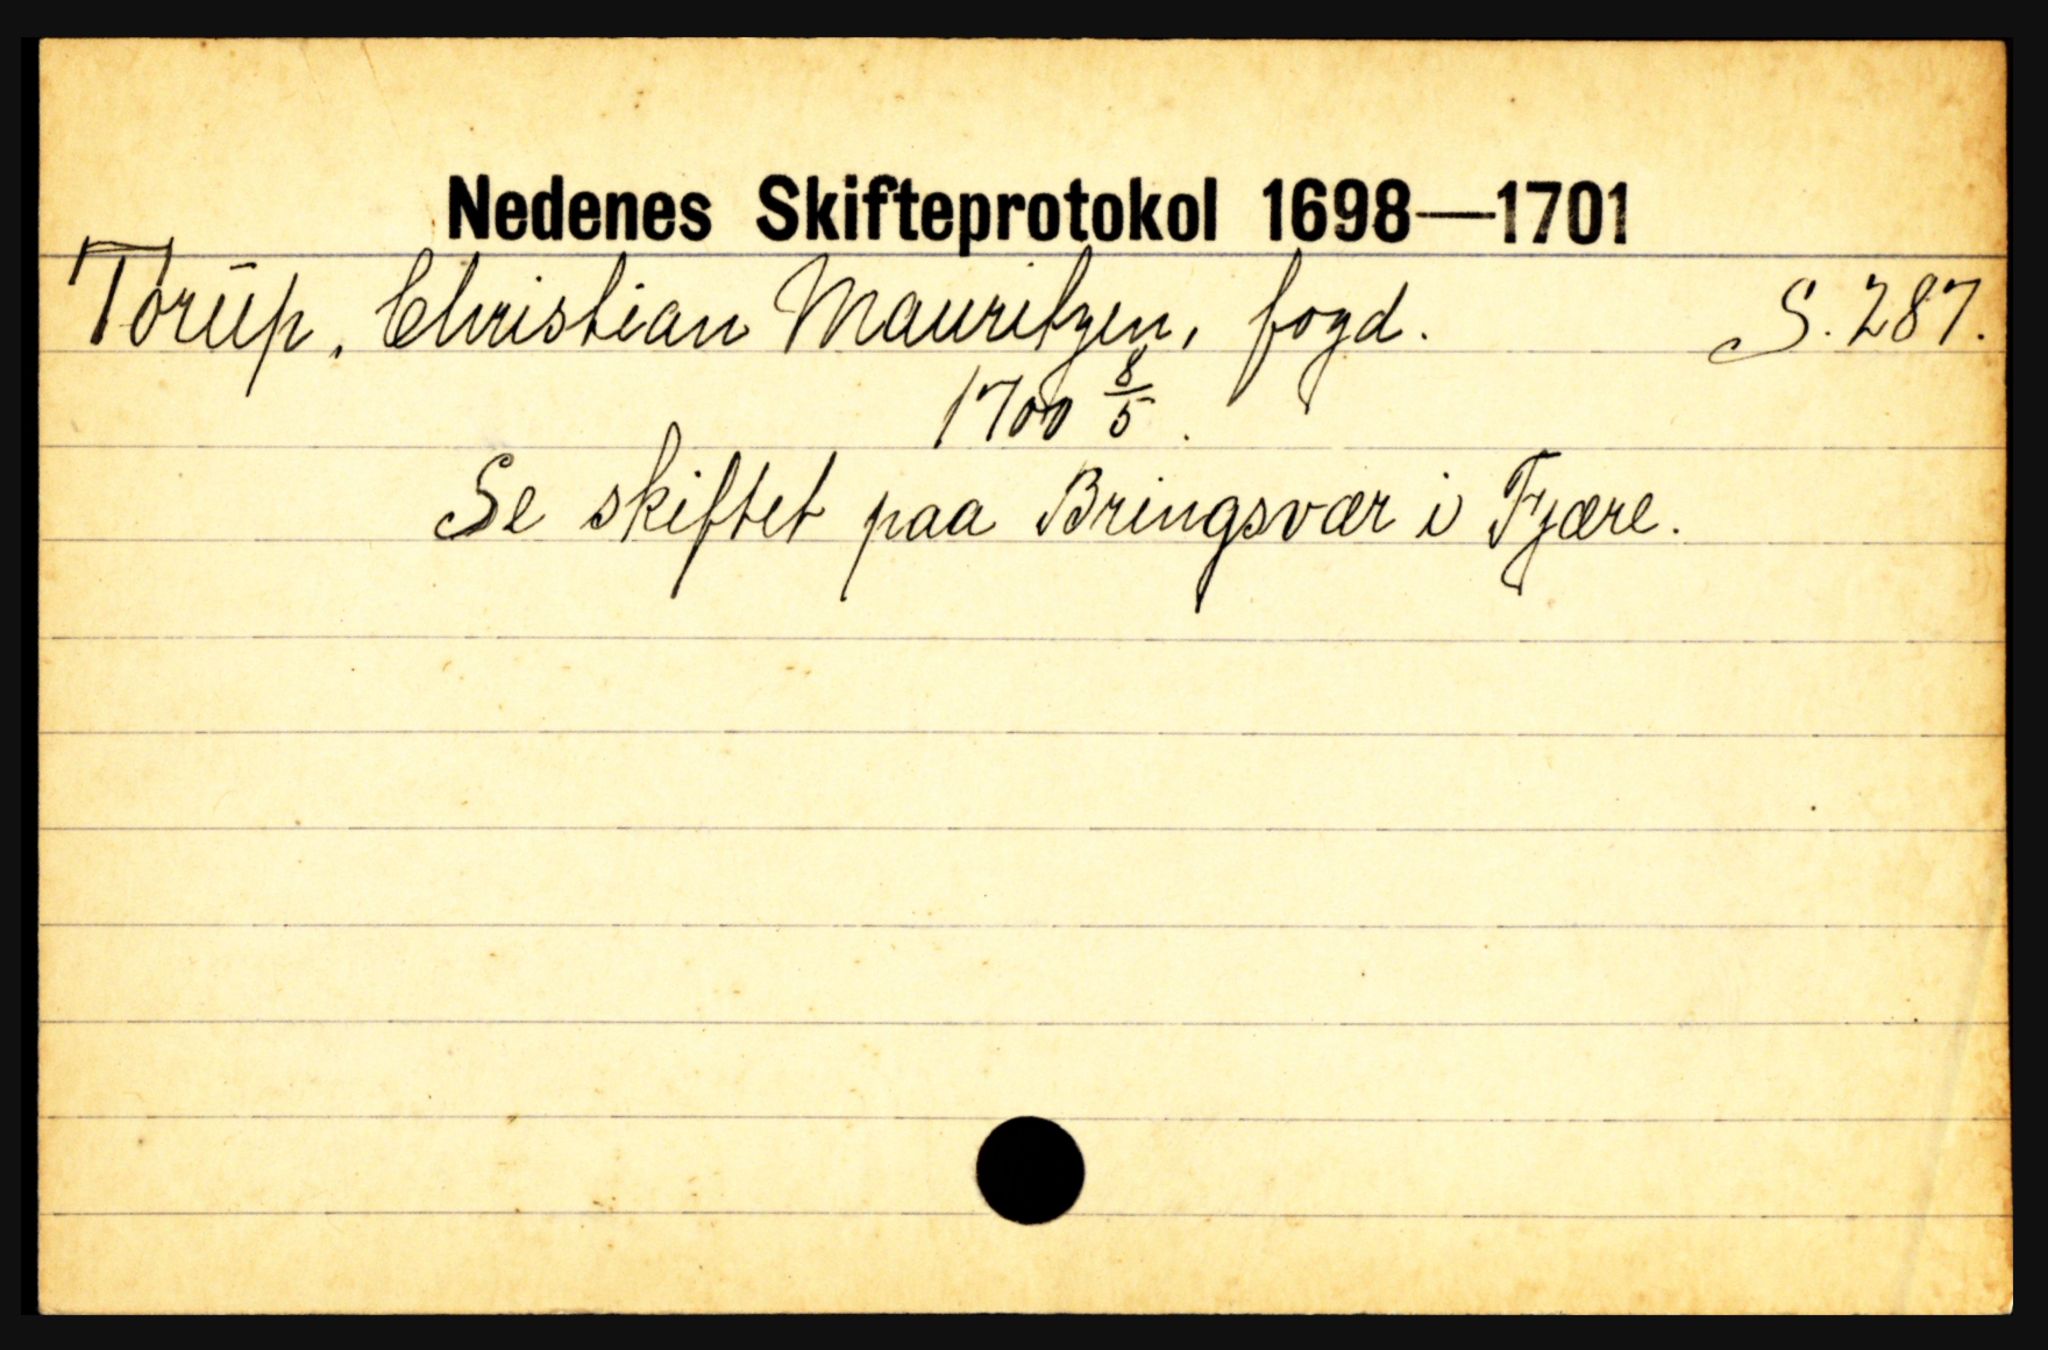 Nedenes Skifteprotokol 1698—1701
Torup, Christian Mauritzen, fogd. S. 287.
1700 8/5.
Se skiftet paa Bringsvær i Fjære.